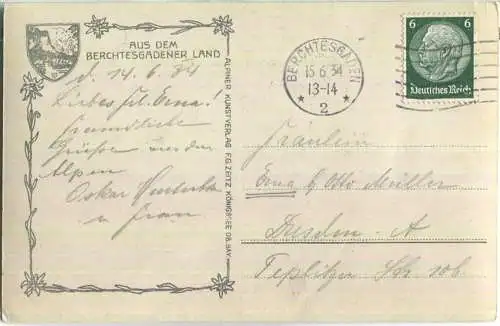 AUS DEM
BERCHTESGADENER LAND
d. 14.6.34
Liebes Frl. Erna!
freundliche
Grüße aus den
Alpen
Oskar
u Frau
ALPINER KUNSTVERLAG F.G. ZEITZ, KÖNIGSSEE OB.BAY.
BERCHTESGADEN
15.6.34
13-14
* 2 *
6 6
Deutsches Reich
Fräulein
Erna b. Otto Müller
Dresden - A
Teplitzer Str 10b